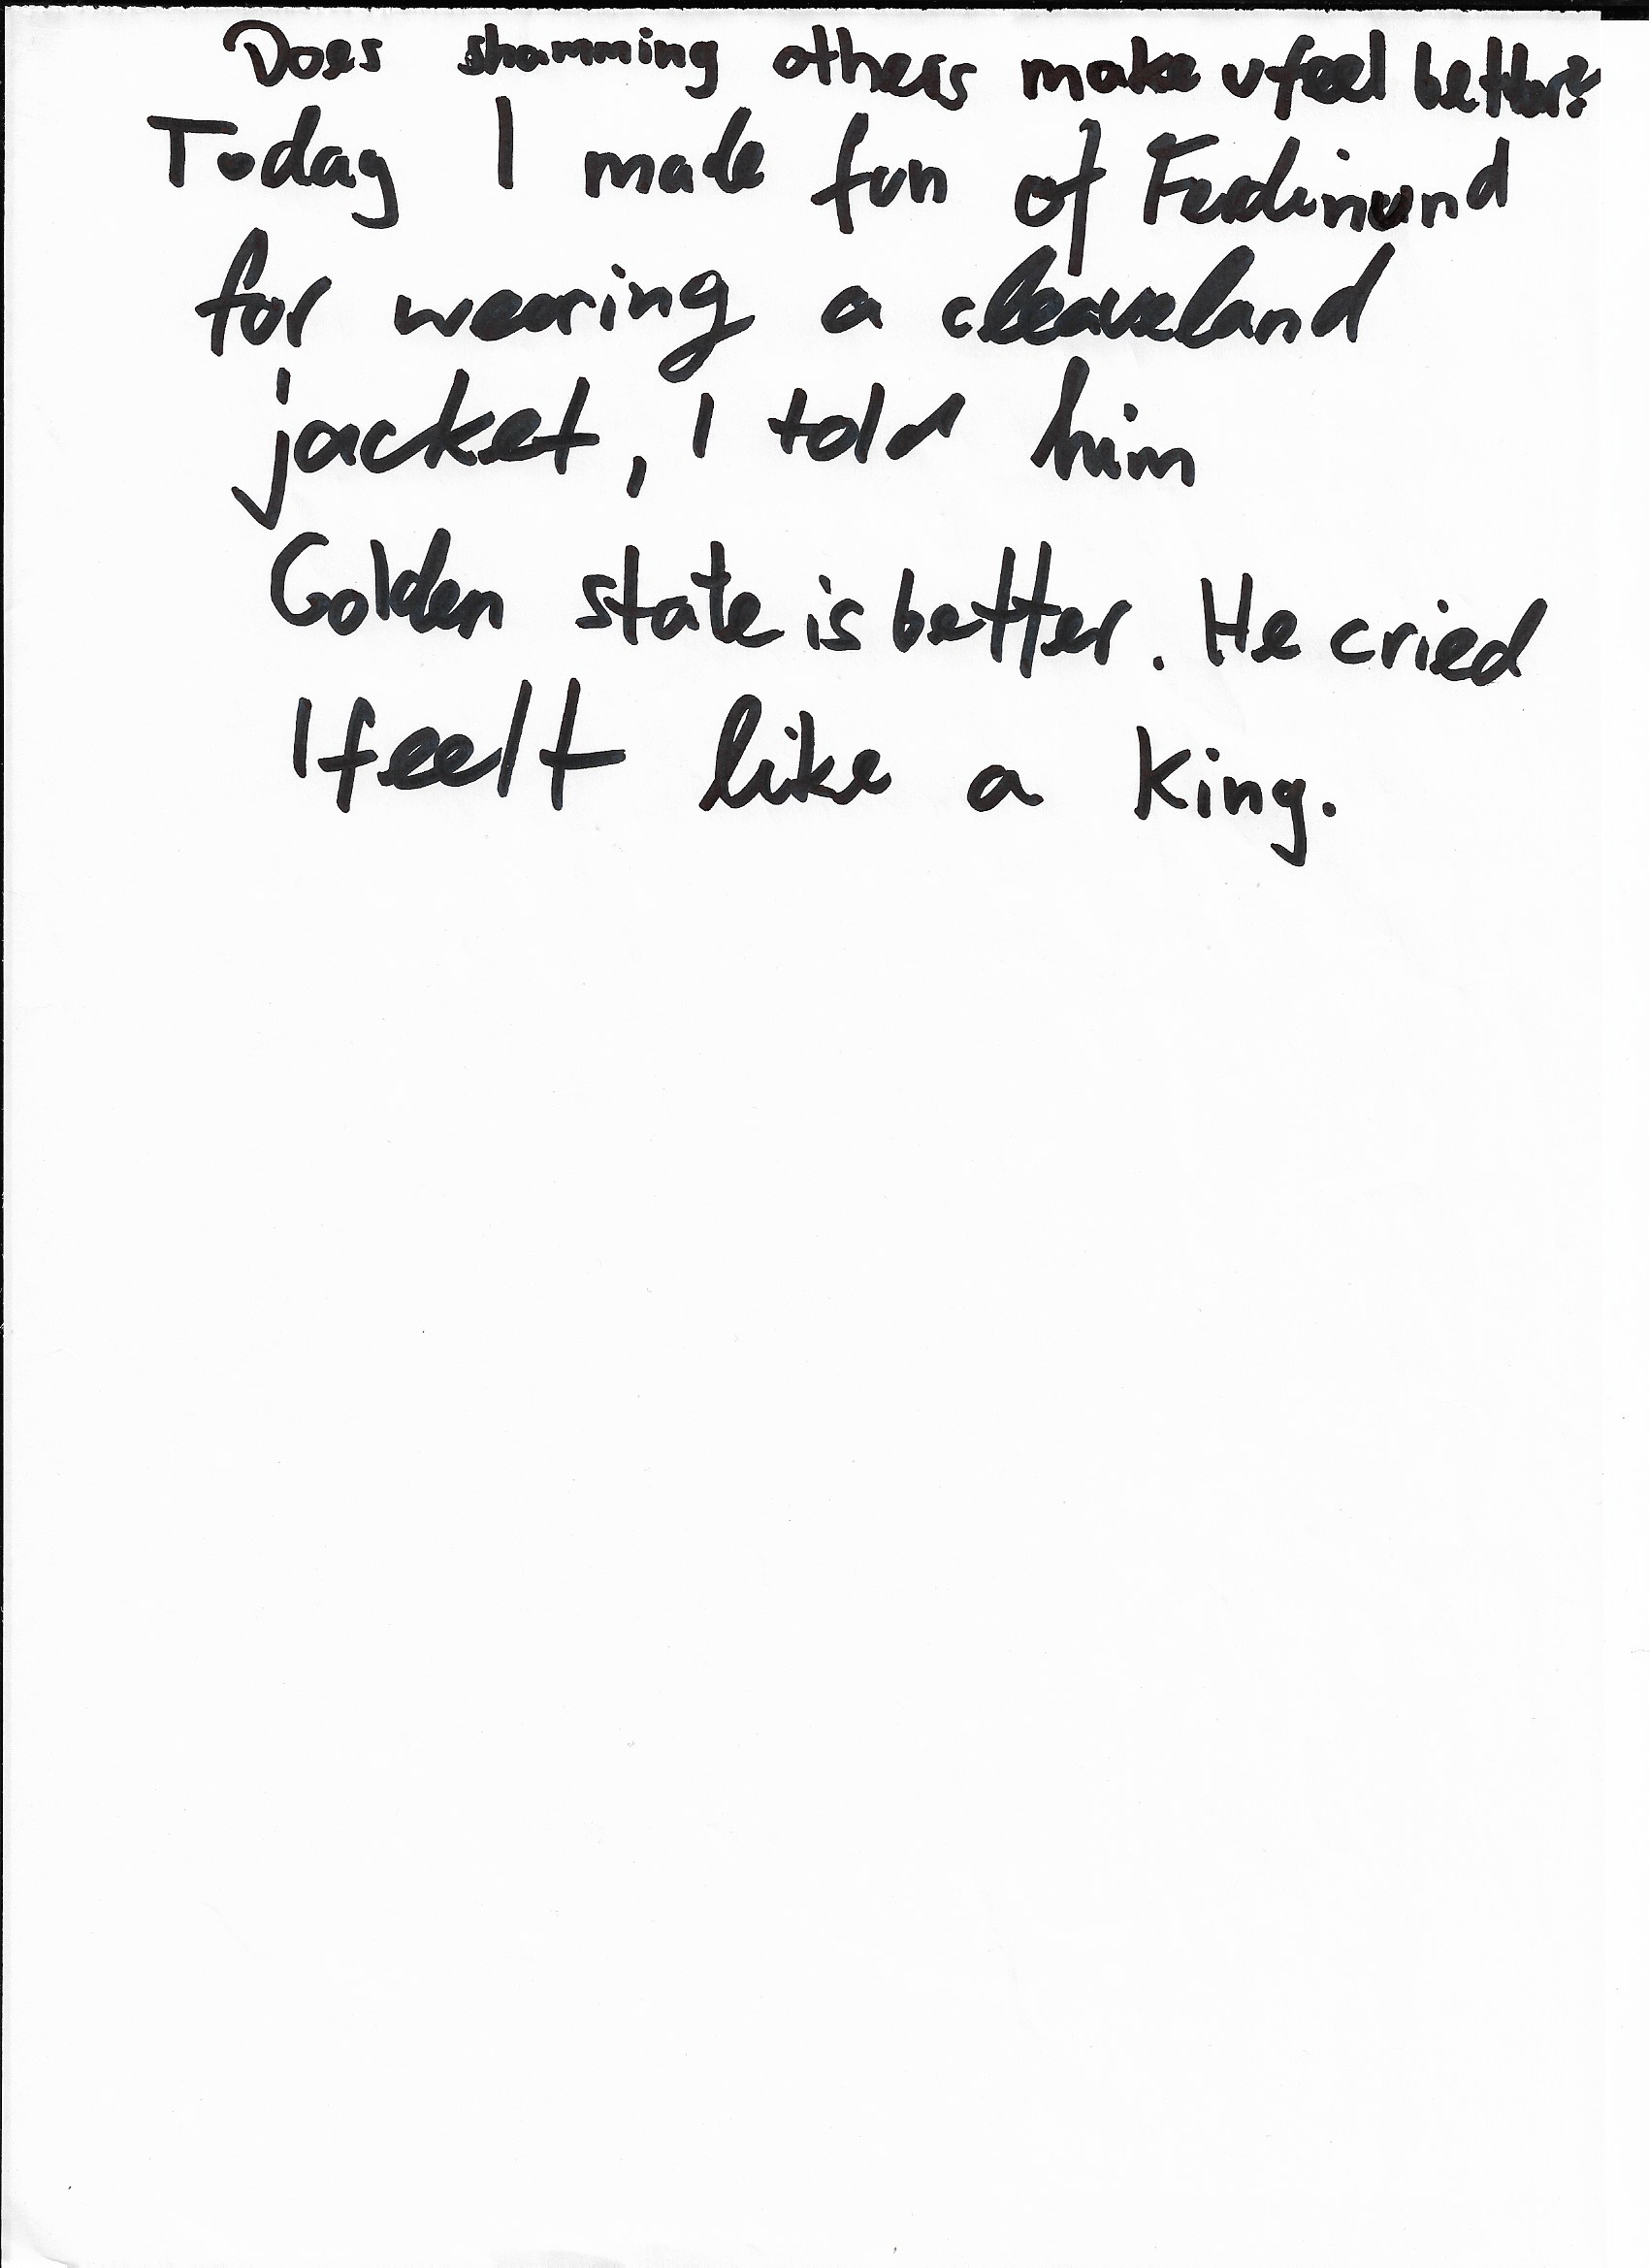 Does shamming others make u feel better?
Today I made fun of Ferdinand
for wearing a cleaveland
jacket, I told him
Golden state is better. He cried
I feelt like a king.